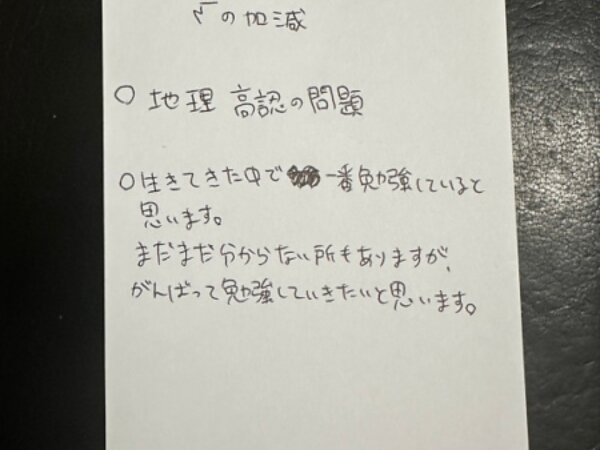 √の加減
○ 地理 高認の問題
○生きてきた中で一番勉強していると
思います。
まだまだ分からない所もありますが、
がんばって勉強していきたいと思います。